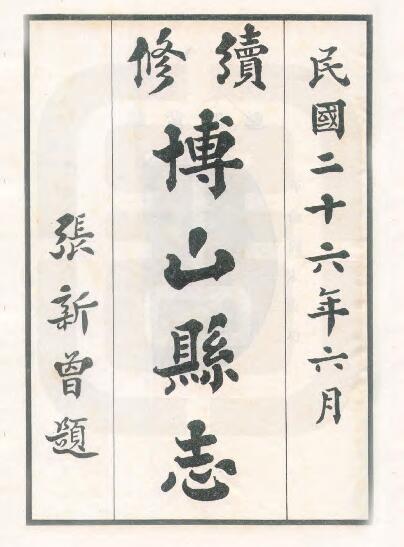 民國二十六年六月
續修
博山縣志
張新曾題